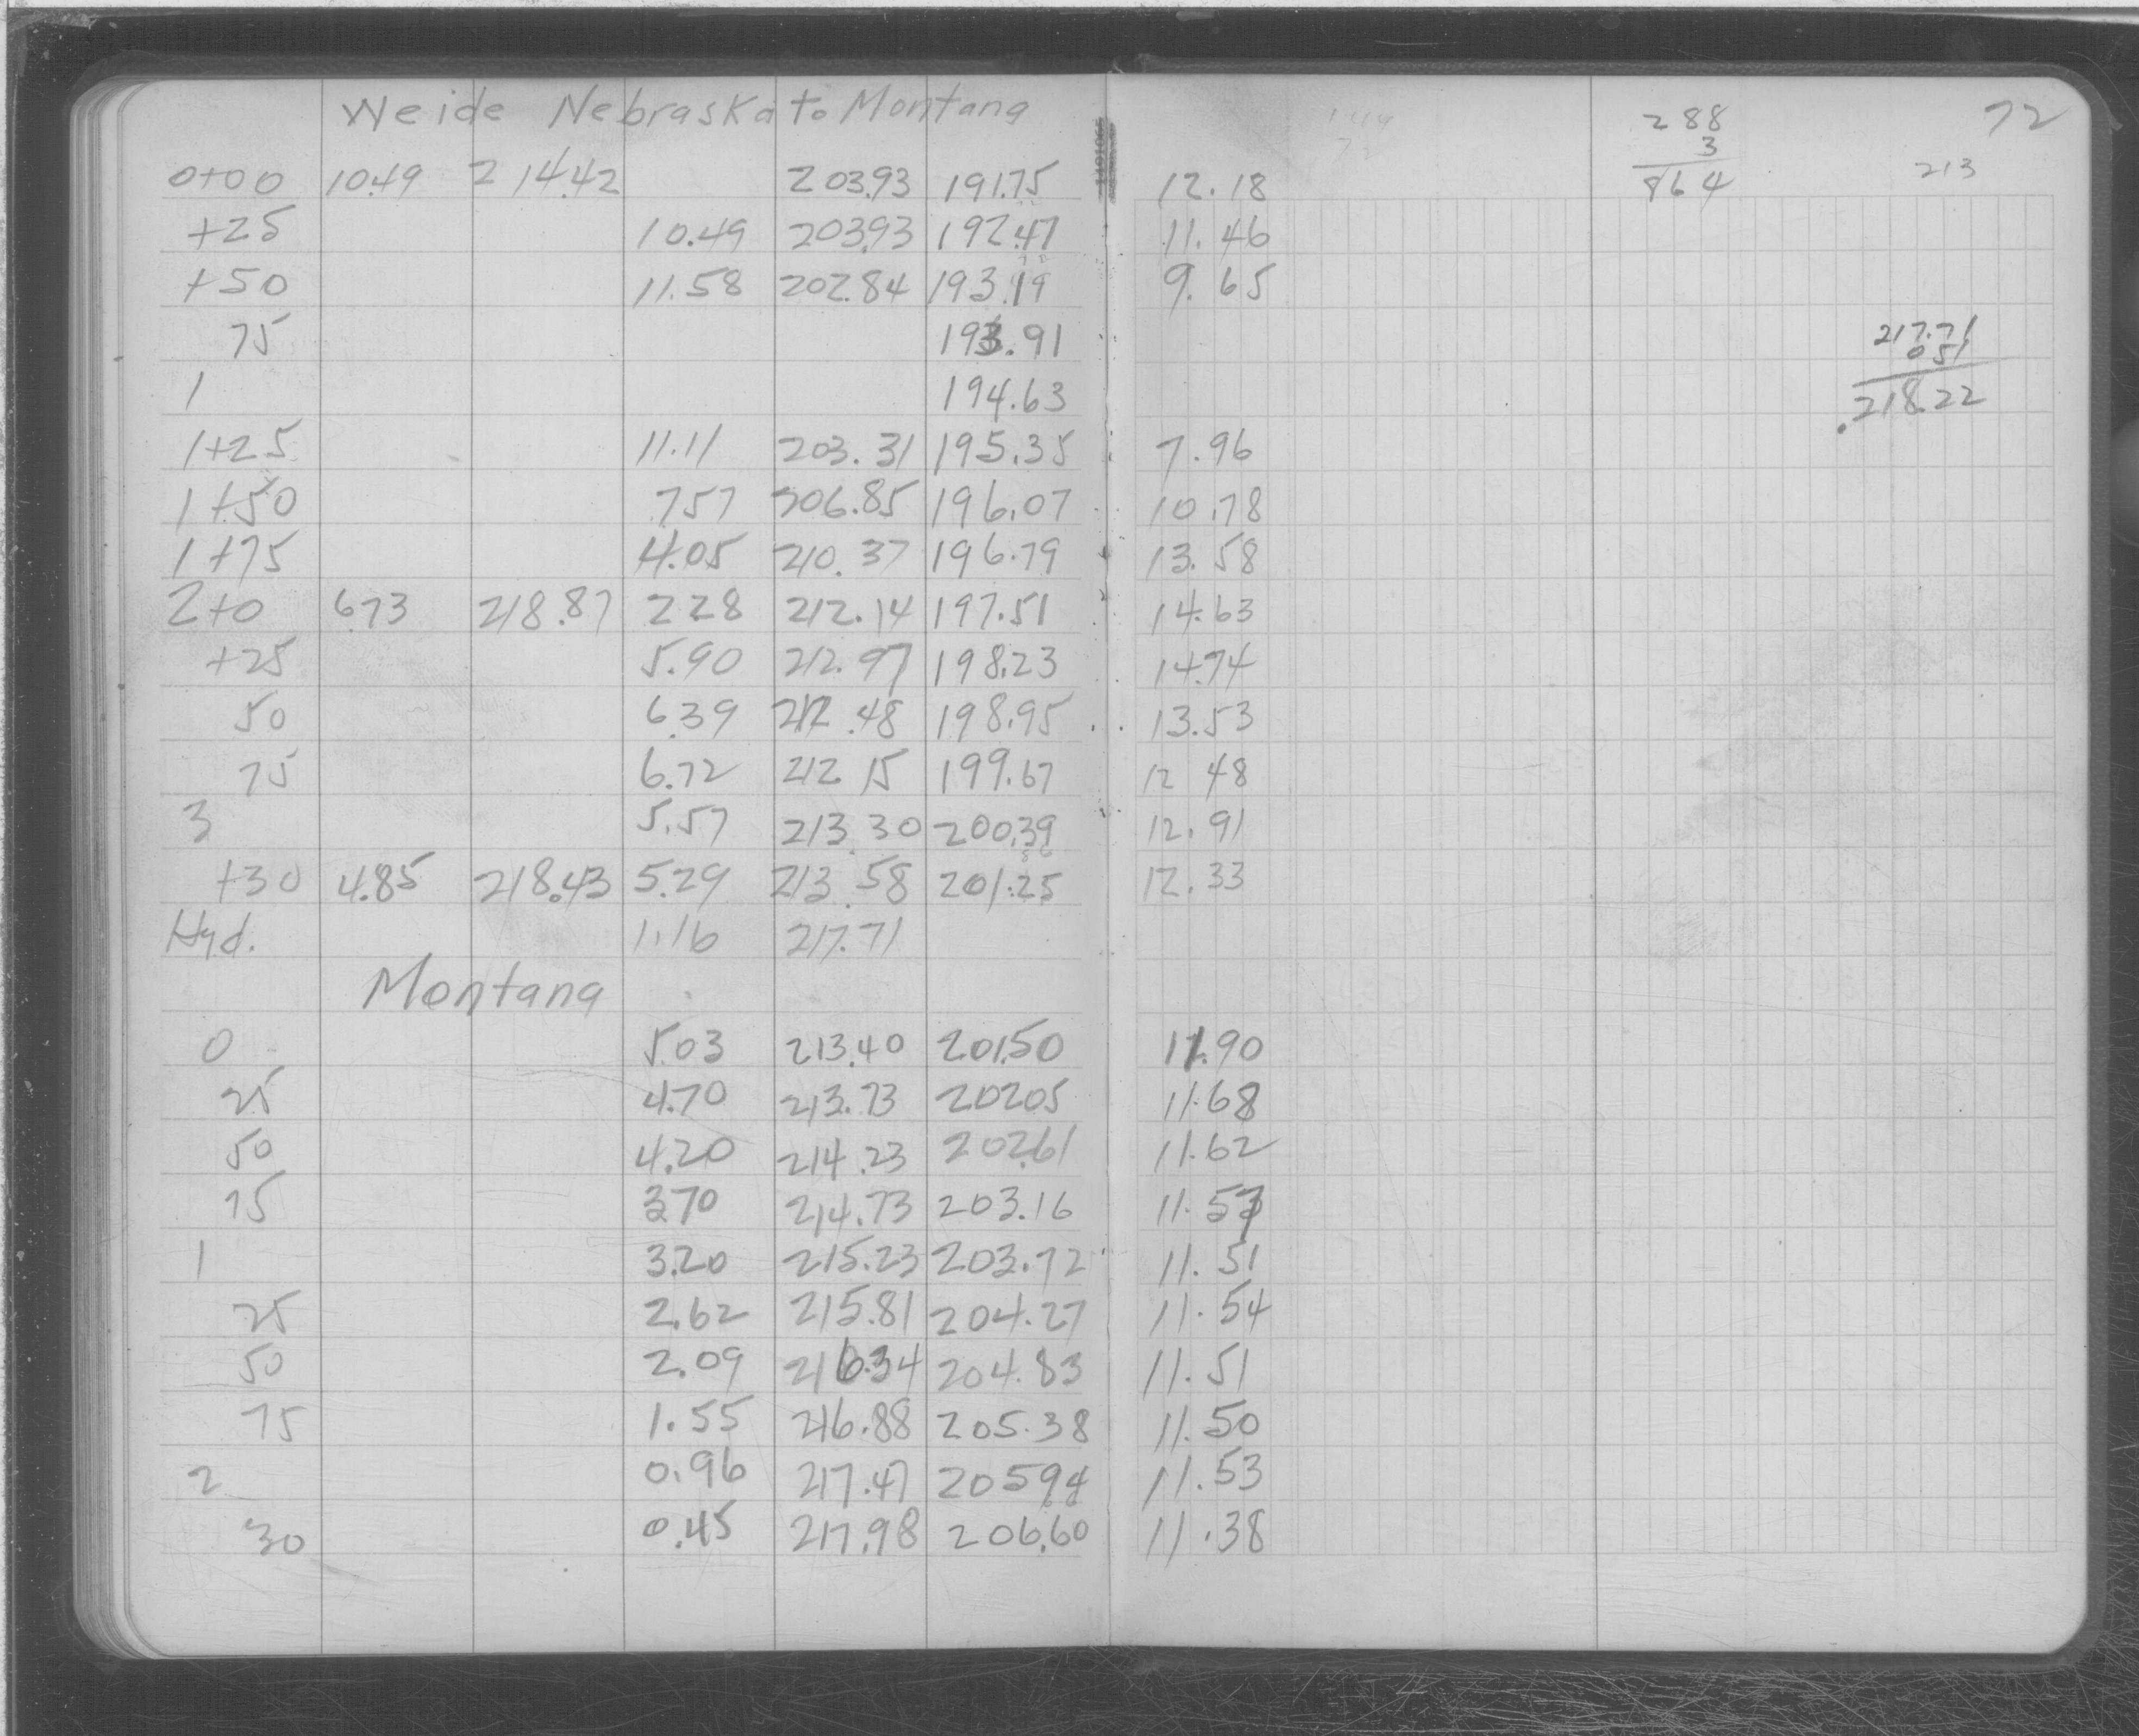 Weide Nebraska to Montana
72
288
3
864
213
0+00 10.49 214.42 203.93 191.75 12.18
+25 10.49 203.93 192.47 11.46
+50 11.58 202.84 193.19 9.65
75 193.91
217.71
051
218.22
1 194.63
1+25 11.11 203.31 195.35 7.96
1+50 757 206.85 196.07 10.78
1+75 4.05 210.37 196.79 13.58
2+0 673 218.87 228 212.14 197.51 14.63
+25 5.90 212.97 198.23 14.74
50 6.39 212.48 198.95 13.53
75 6.72 212 15 199.67 12 48
3 5.57 213.30 200.39 12.91
+30 4.85 218.43 5.29 213.58 201.25 12.33
Hyd. 1.16 217.71
Montana
0 5.03 213.40 201.50 11.90
25 4.70 213.73 20205 11.68
50 4.20 214.23 202.61 11.62
75 370 214.73 203.16 11.57
1 3.20 215.23 203.72 11.51
25 2.62 215.81 204.27 11.54
50 2.09 216.34 204.83 11.51
75 1.55 216.88 205.38 11.50
2 0.96 217.47 20594 11.53
30 0.45 217.98 206.60 11.38